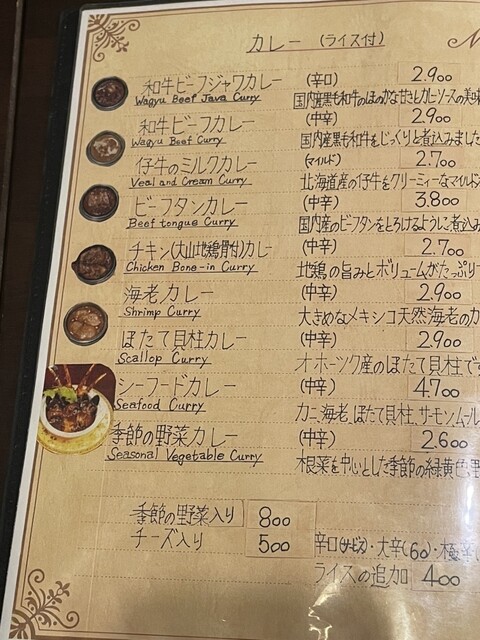 カレー (ライス付)
和牛ビーフジャワカレー (辛口) 2.900
Wagyu Beef Java Curry 国内産黒毛和牛のほのかな甘さとカレーソースの美味
和牛ビーフカレー (中辛) 2.900
Wagyu Beef Curry 国内産黒毛和牛をじっくりと煮込みました
仔牛のミルクカレー (マイルド) 2.700
Veal and Cream Curry 北海道産の仔牛をクリーミィーなマイルド
ビーフタンカレー (中辛) 3.800
Beef tongue Curry 国内産のビーフタンをとろけるように煮込み
チキン(大山地鶏骨付)カレー (中辛) 2.700
Chicken Bone-in Curry 地鶏の旨みとボリュームがたっぷり
海老カレー (中辛) 2.900
Shrimp Curry 大きめなメキシコ天然海老のカ
ほたて貝柱カレー (中辛) 2.900
Scallop Curry オホーツク産のほたて貝柱です
シーフードカレー (中辛) 4.700
Seafood Curry カニ、海老、ほたて貝柱、サーモン、ムール
季節の野菜カレー (中辛) 2.600
Seasonal Vegetable Curry 根菜を中心とした季節の緑黄色野
季節の野菜入り 800
チーズ入り 500 辛口(サービス)・大辛(60)・極辛(
ライスの追加 400